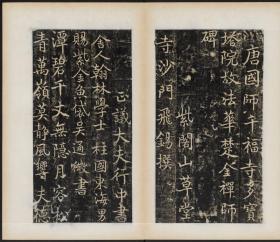 唐國師千福寺多寶
塔院故法華楚金禪師
碑
紫閣山草堂
寺沙門飛錫撰
正議大夫行中書
舍人翰林學士上柱國東海男
賜紫金魚袋吳通微書
潭碧千丈無隱月容松
青萬嶺莫靜風響大德